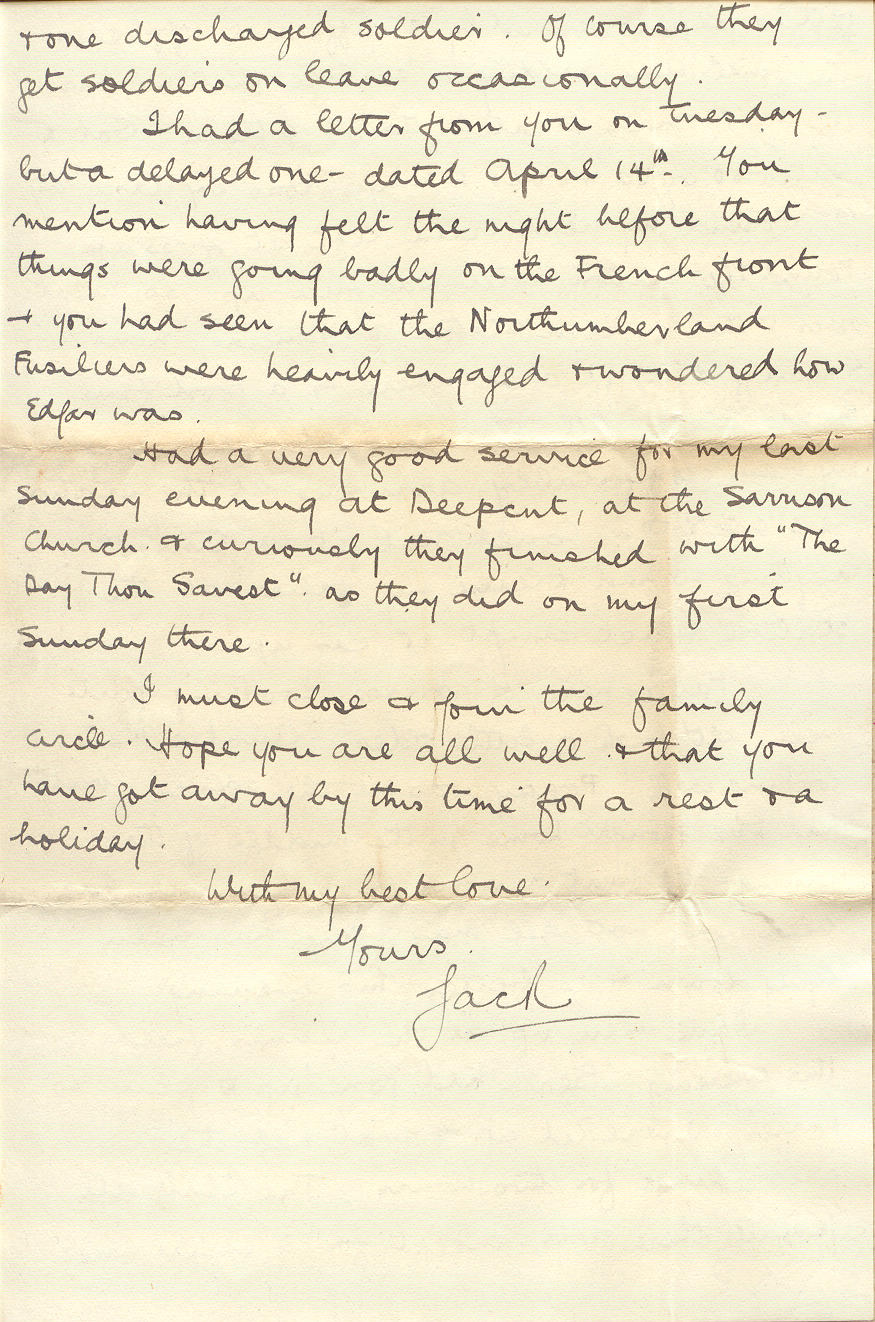 & one discharged soldier. Of course they
get soldiers on leave occasionally.
I had a letter from you on Tuesday -
but a delayed one - dated April 14th. You
mention having felt the night before that
things were going badly on the French front
& you had seen that the Northumberland
Fusiliers were heavily engaged & wondered how
Edgar was.
Had a very good service for my last
Sunday evening at Deepcut, at the Garrison
Church. & curiously they finished with "The
Day Thou Gavest". as they did on my first
Sunday there.
I must close & join the family
circle. Hope you are all well. & that you
have got away by this time for a rest & a
holiday.
With my best love.
Yours.
Jack